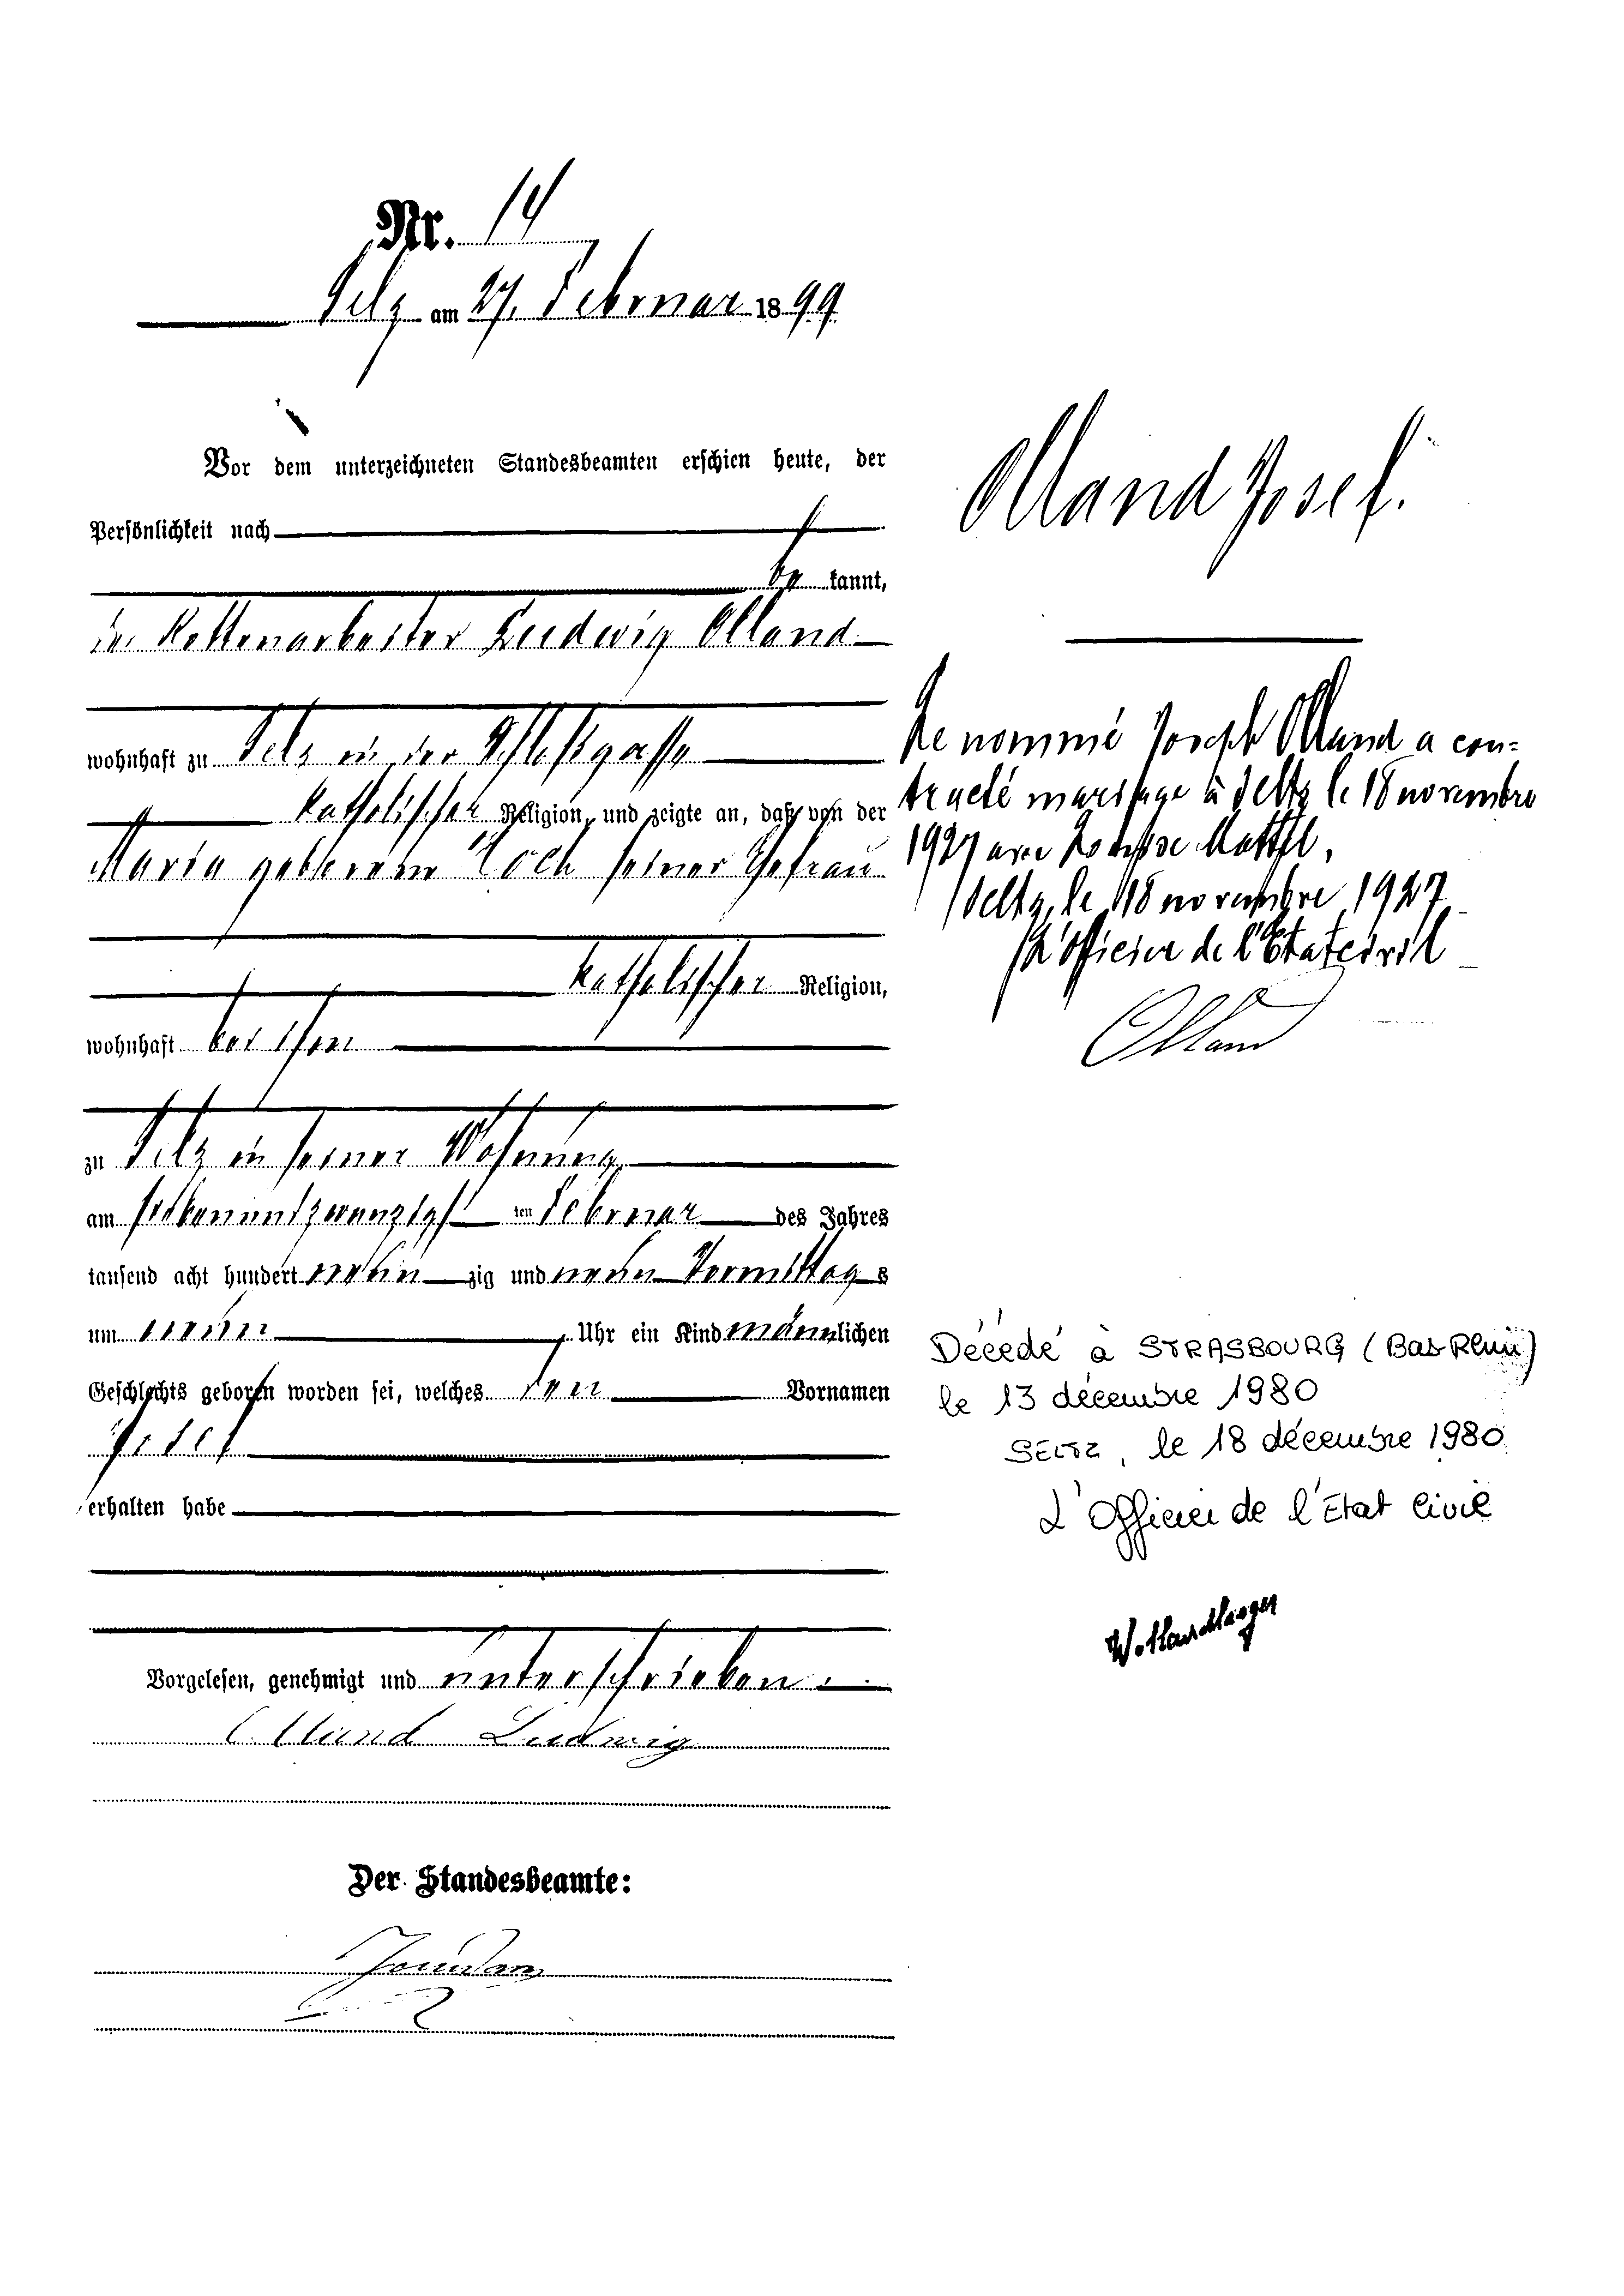 Nr. 14
Selz am 27. Februar 1899
Vor dem unterzeichneten Standesbeamten erschien heute, der
Persönlichkeit nach
be kannt,
der Rottenarbeiter Ludwig Olland
wohnhaft zu Selz in der Schloßgasse
katholischer Religion, und zeigte an, daß von der
Maria geborene Zoch seiner Ehefrau
katholischer Religion,
wohnhaft bei ihm
zu Selz in seiner Wohnung
am siebenundzwanzigst ten Februar des Jahres
tausend acht hundert neun zig und neun Vormittags
um neun Uhr ein Kind männlichen
Geschlechts geboren worden sei, welches den Vornamen
Josef
erhalten habe
Vorgelesen, genehmigt und unterschrieben
Olland Ludwig
Der Standesbeamte:
Olland Josef.
Le nommé Joseph Olland a con-
tracté mariage à Seltz le 18 novembre
1927 avec
Seltz, le 18 novembre 1927
L'Officier de l'Etat civil
Olland
Décédé à STRASBOURG (Bas-Rhin)
le 13 décembre 1980
SELTZ, le 18 décembre 1980
L'Officier de l'Etat Civil